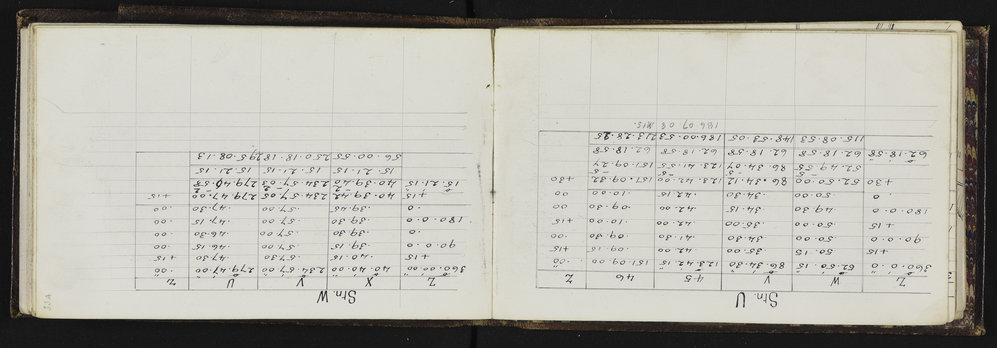 Stn. U
Z W V 45 46 Z
360.0.0 52.50.15 86.34.30 123.42.15 151.09.00 .00
+15 50.15 35.00 42.00 09.15 +15
90.0.0 50.00 34.30 41.30 09.30 .00
+15 50.00 35.00 42.00 10.00 +15
180.0.0 49.30 34.15 42.00 09.30 .00
.0 50.00 34.30 42.15 10.00 00
+30 52.50.00 86.34.12 123.42.00 151.09.32 +30
-5 -5 -5 -5
52.49.55 86.34.07 123.41.55 151.09.27
62.18.58 62.18.58 62.18.58 62.18.58 62.18.58
115.08.53 148.53.05 186.00.53 213.28.25
186.07.08
Stn. W
Z X V U Z
360.00.00 40.40.00 234.57.00 279.47.00 .00
+15 .40.15 .57.30 .47.30 +15
90.0.0 .39.15 .57.00 .46.15 .00
.0 .39.30 .57.00 .46.30 .00
180.0.0 .39.30 .57.00 .47.15 .00
.0 .39.45 .57.00 .47.30 .00
+15 40.39.42 234.57.05 279.47.00 +15
15.21.15 40.39.40 234.57.03 279.46.58
15.21.15 15.21.15 15.21.15
56.00.55 250.18.18 295.08.13